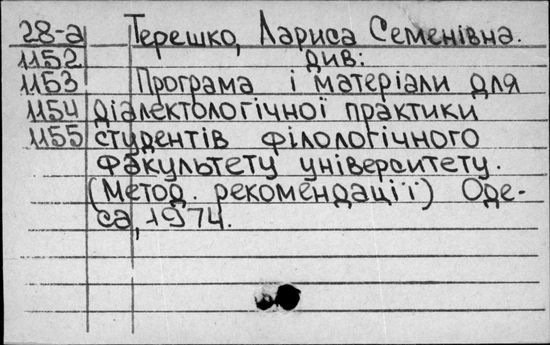 28-а Терешко, Лариса Семенівна.
1152 див:
1153 Програма і матеріали для
1154 діалектологічної практики
1155 студентів філологічного
факультету університету.
(Метод. рекомендації) Оде-
са, 1974.